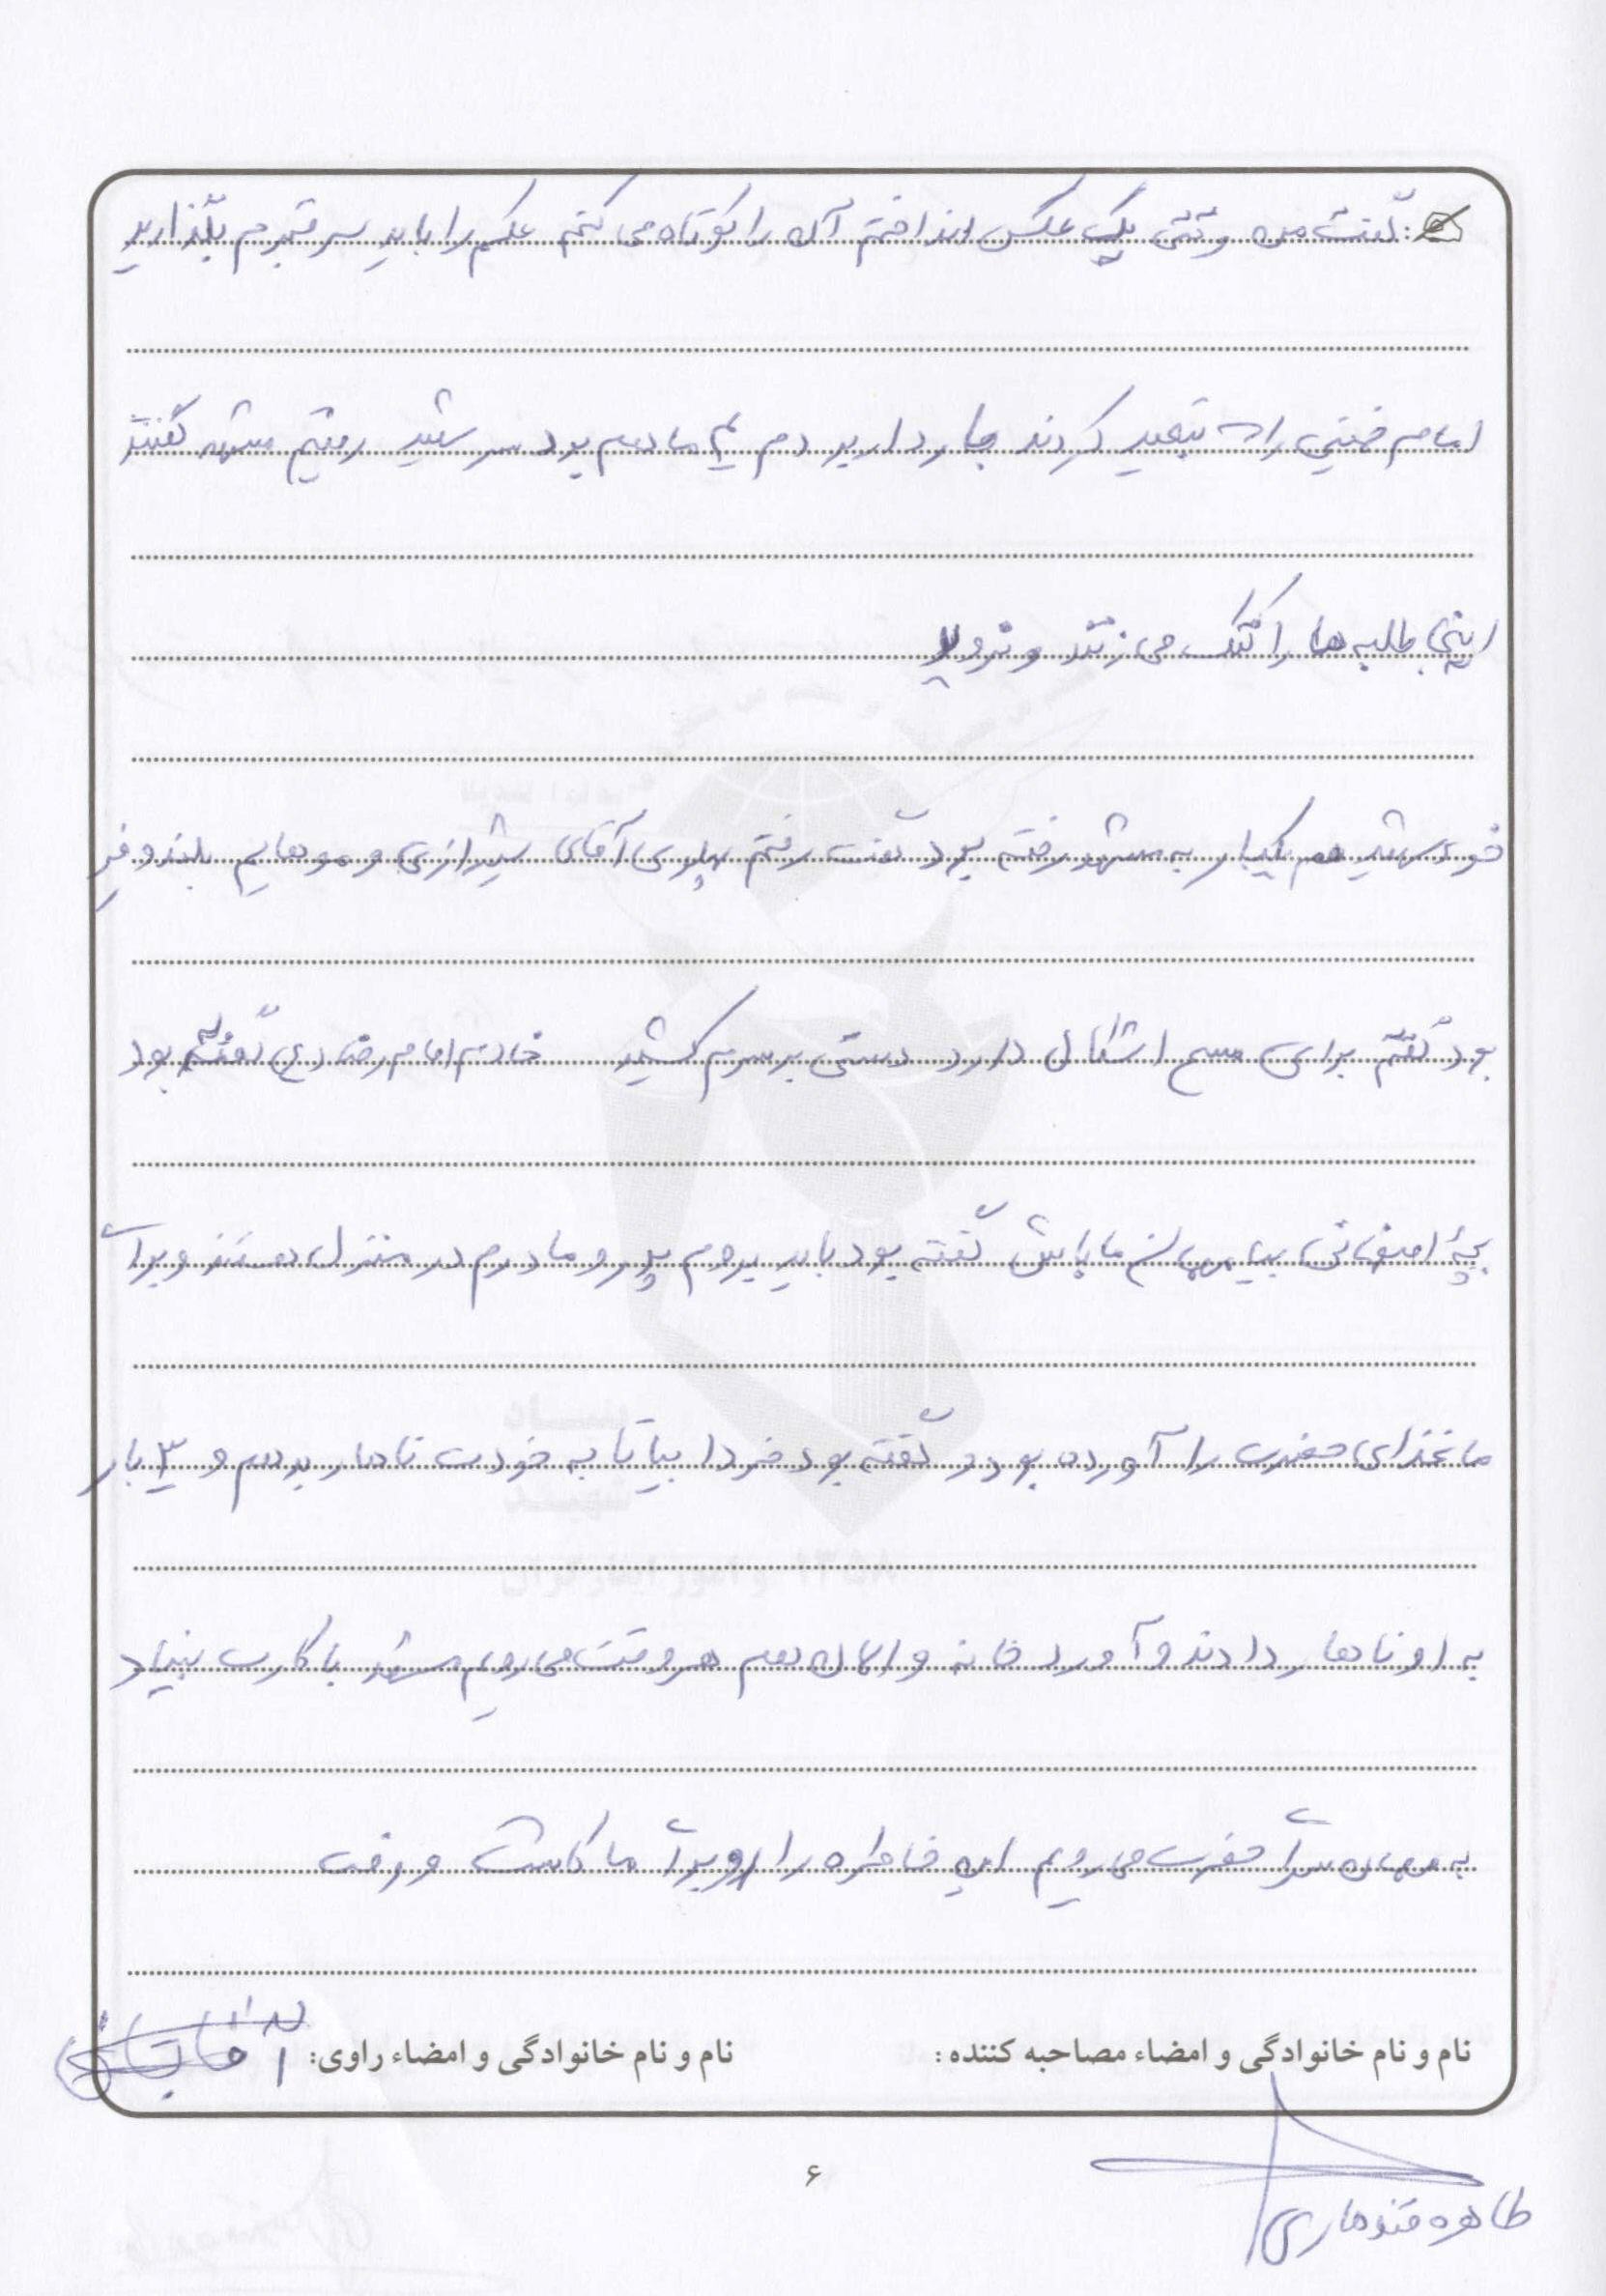 گفت من وقتی یک عکس انداختم آن را کوتاه می کنم عکسم را باید سر قبرم بگذارید
امام خمینی را که تبعید کردند چهار ماهم بود سر شهید رفتیم مشهد گفتند
اینجا طلبه ها را کتک می زنند و نروید
خود شهید هم یکبار به مشهد رفته بود گفت رفتم پهلوی آقای شیرازی و موهایم بلند و فر
بود گفتم برای مسح اشکال دارد دستی بر سرم کشید خادم امام رضا (ع) گفته بود
بچۀ اصفهانی بیا مهمان ما باش گفته بود باید بروم پدر و مادرم در منزل هستند و برای
ما غذای حضرت را آورده بود و گفته بود فردا بیا تا به خودت ناهار بدهم و ۳ بار
به او ناهار دادند و آورد خانه و الان هم هر وقت می رویم مشهد با کارت بنیاد
به مهمان سرای حضرت می رویم این خاطره را او برای ما کاشت و رفت
نام و نام خانوادگی و امضاء مصاحبه کننده :
نام و نام خانوادگی و امضاء راوی:
طاهره قندهاری
۶